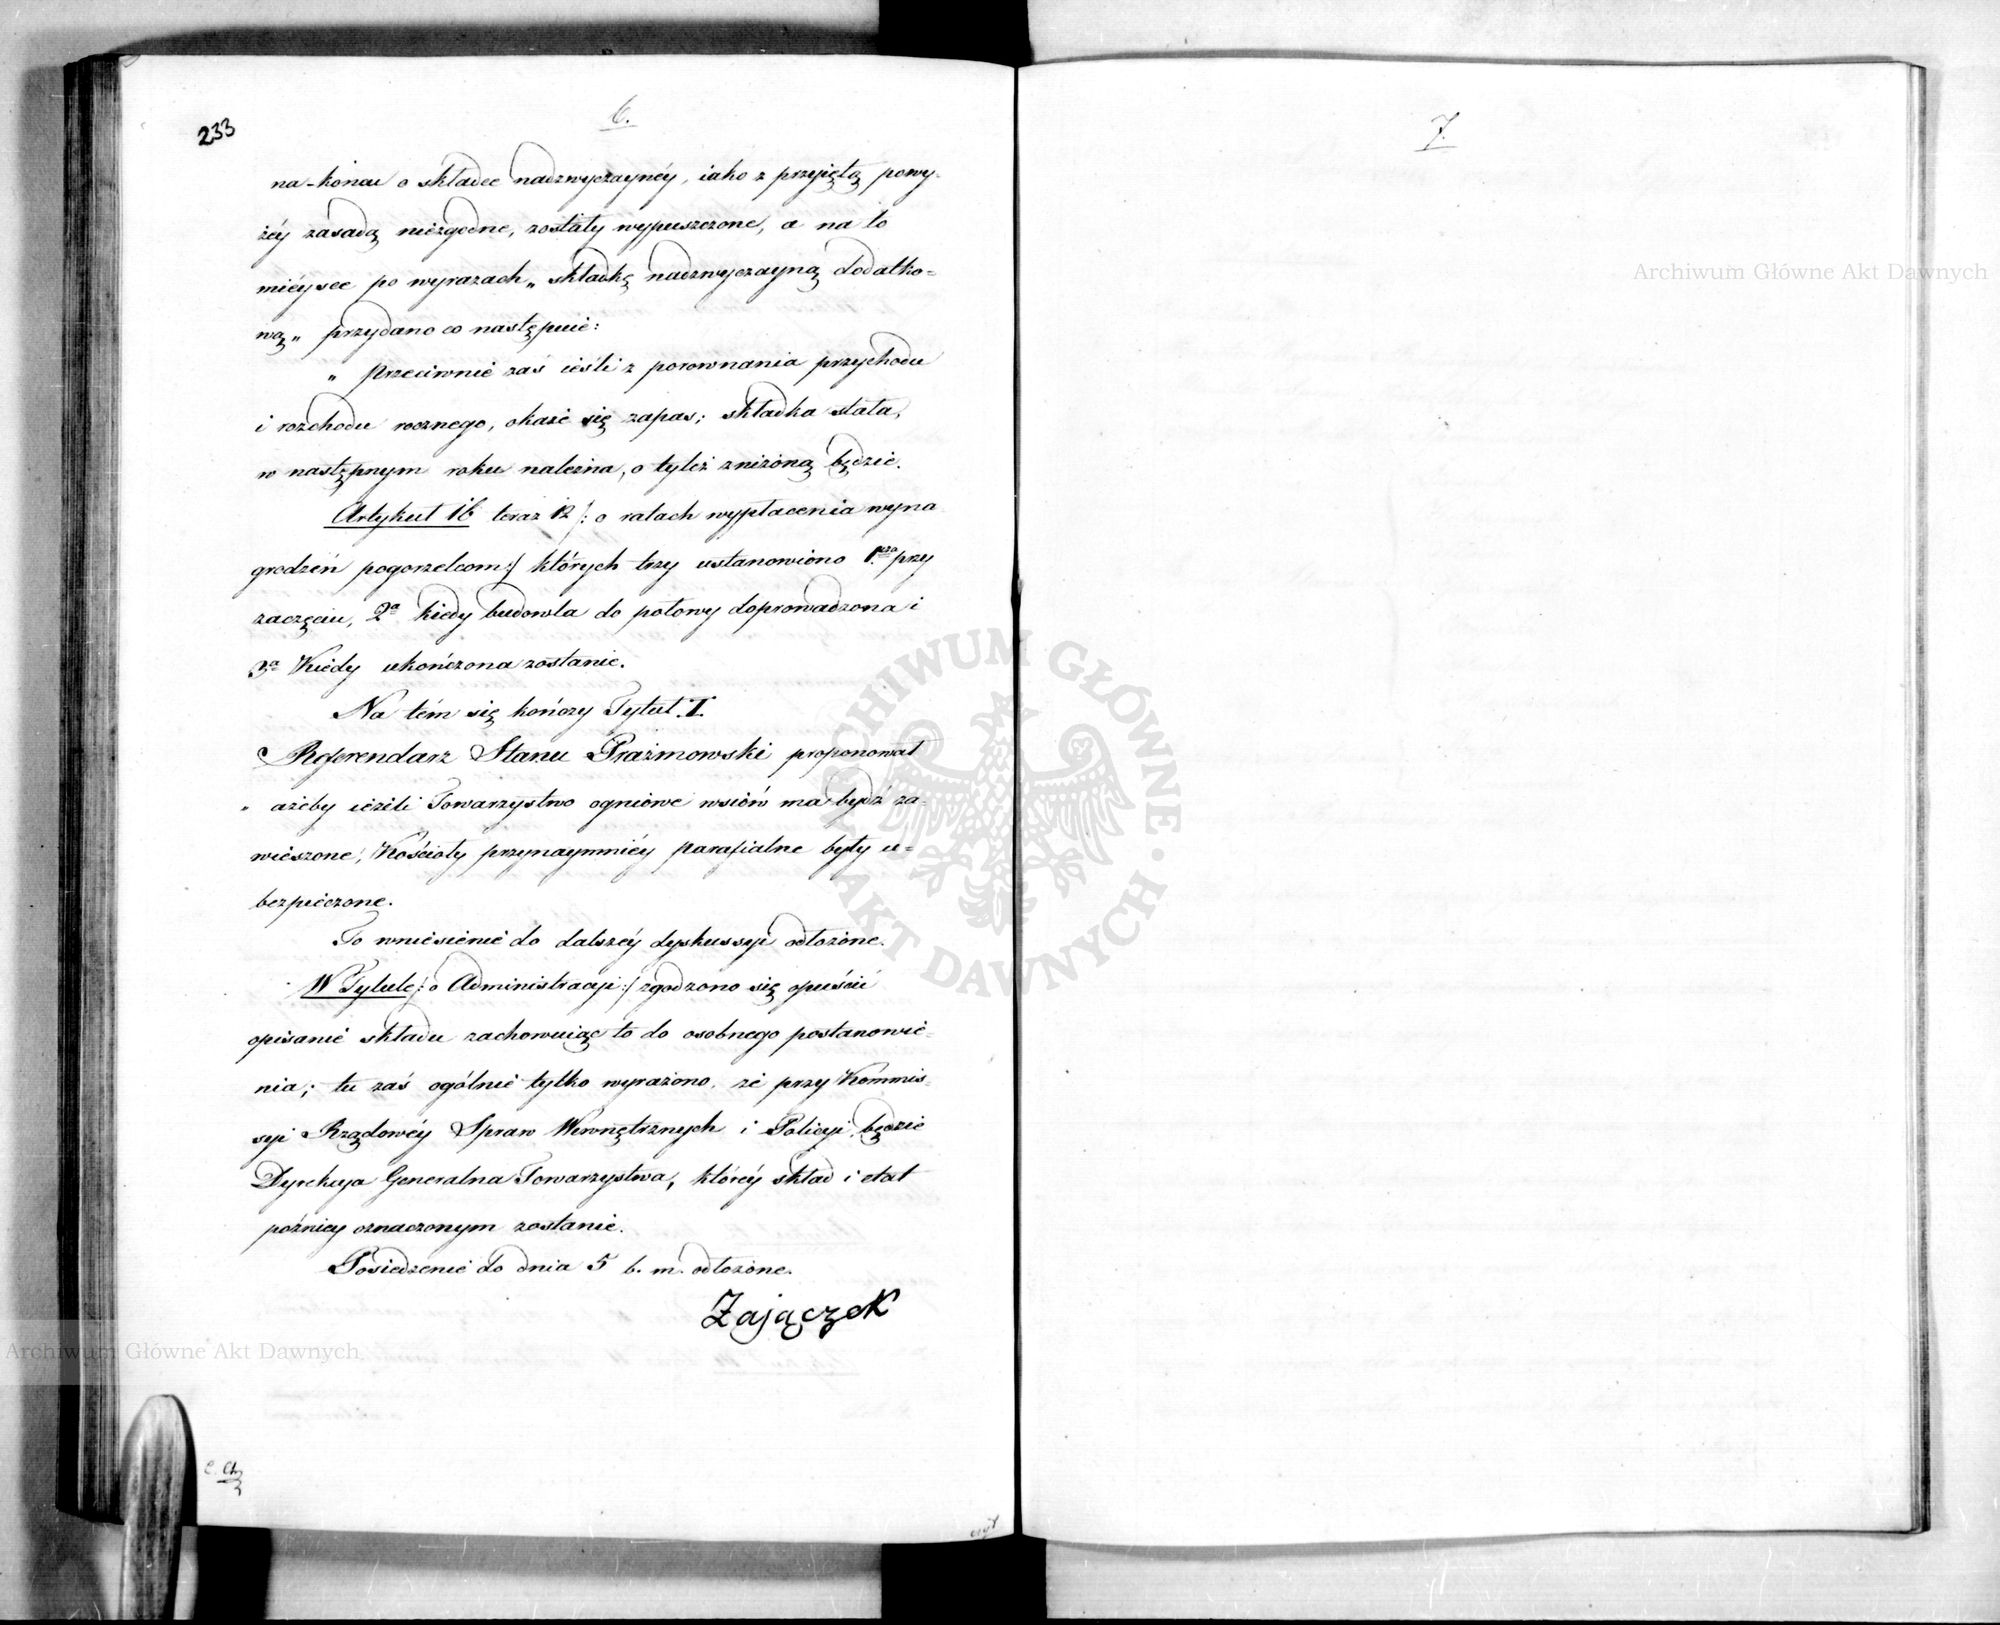 6.
233
na końcu o składce nadzwyczaynéy, iako z przyiętą powy-
żéy zasadą niezgodne, zostały wypuszczone, a na to
miéysce po wyrazach „ składkę nadzwyczayną dodatko=
wą „ przydano co następuie:
„ Przeciwnie zaś ieśli z porownania przychodu
i rozchodu rocznego, okaże się zapas; składka stała,
w następnym roku należna, o tyleż zniżoną będzie.
Artykuł 16 teraz 12 /: o ratach wypłacenia wyna
grodzeń pogorzelcom :/ których trzy ustanowiono 1.sza przy
zaczęciu, 2a kiedy budowla do połowy doprowadzona i
3a Kiedy ukończona zostanie.
Na tém się kończy Tytuł I.
Referendarz Stanu Prażmowski proponował
„ ażeby ieżeli Towarzystwo ogniowe wsiów ma bydź za=
wieszone, Kościoły przynaymniéy parafialne były u=
bezpieczone.
To wniesienie do dalszéy dyskussyi odłożone.
W Tytule /: o Administracyi :/ zgodzono się opuścić
opisanie składu zachowuiąc to do osobnego postanowie=
nia; tu zaś ogólnie tylko wyrażono, że przy Kommis=
syi Rządowéy Spraw Wewnętrznych i Policyi będzie
Dyrekcya Generalna Towarzystwa, któréy skład i etat
pożniey oznaczonym zostanie.
Posiedzenie do dnia 5 b. m. odłożone.
Zajączek
7.
Archiwum Główne Akt Dawnych
ARCHIWUM GŁÓWNE AKT DAWNYCH
Archiwum Główne Akt Dawnych